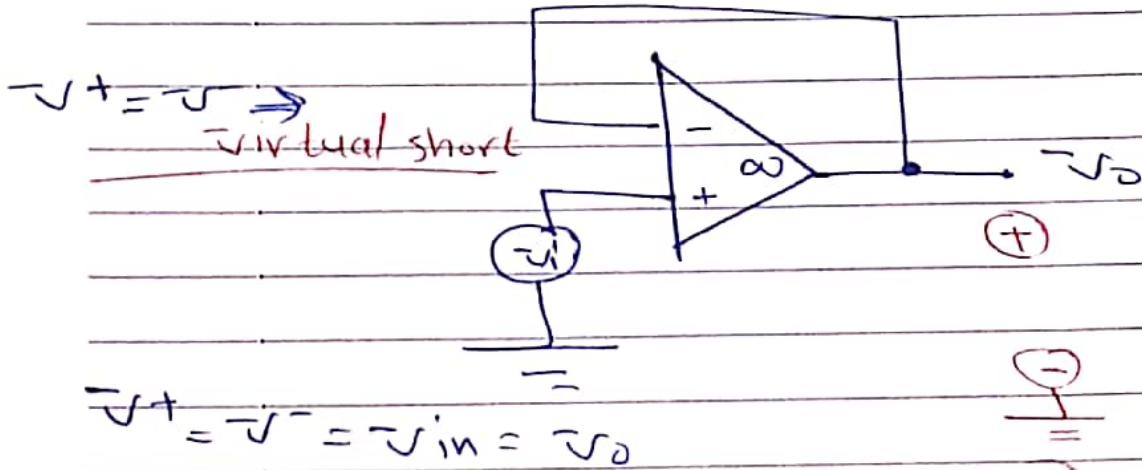 V⁺ = V⁻ ⇒
Virtual short
-
∞
+
Vo
Vi
+
-
V⁺ = V⁻ = Vin = Vo